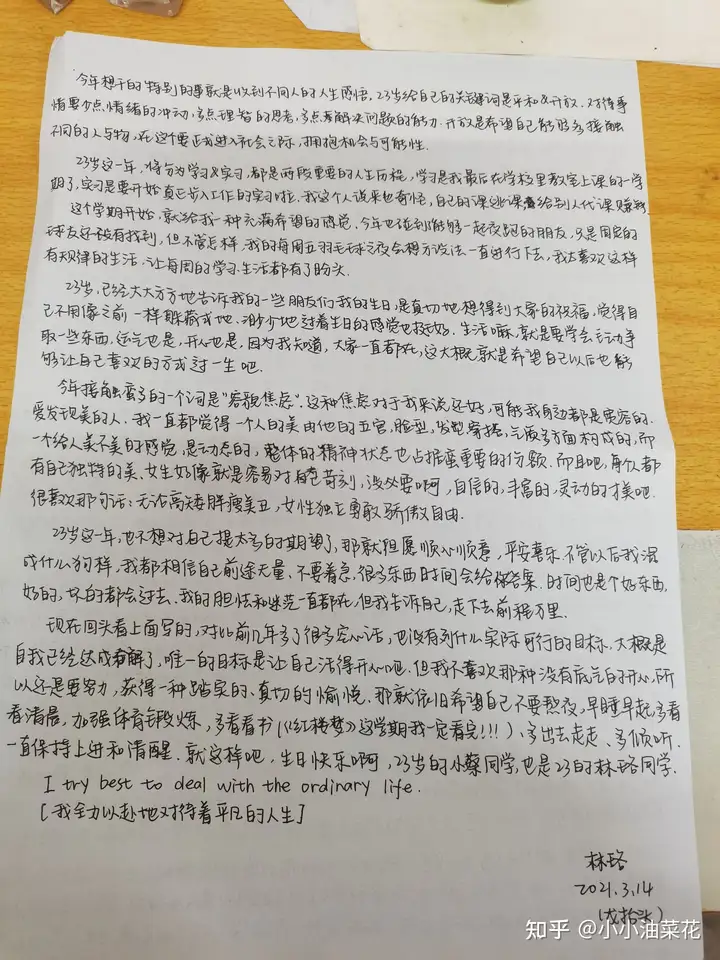 今年想干的特别的事就是收到不同人的人生感悟。23岁给自己的关键词是平和&开放。对待事
情要少点情绪的冲动,多点理智的思考,多点解决问题的能力。开放是希望自己能够多接触
不同的人与物,在这个要正式进入社会之际,拥抱机会与可能性。
23岁这一年,将分为学习&实习,都是两段重要的人生历程,学习是我最后在学校里教室上课的一学
期了,实习是要开始真正步入工作的实习啦。我这个人说来也奇怪,自己的课逃课给别人代课赚钱
这个学期开始,就给我一种充满希望的感觉。今年也碰到能够一起夜跑的朋友,只是固定的
球友还没有找到,但不管怎样,我的每周五羽毛球之夜会想方设法一直进行下去,我太喜欢这样
有规律的生活。让每周的学习生活都有了盼头。
23岁,已经大大方方地告诉我的一些朋友们我的生日,是真切地想得到大家的祝福,觉得自
己不用像之前一样躲藏或地、渺少地过着生日的感觉也挺好。生活嘛,就是要学会主动争
取一些东西,运气也是,开心也是,因为我知道,大家一直都在,这大概就是希望自己以后也能
够让自己喜欢的方式过一生吧。
今年接触蛮多的一个词是“容貌焦虑”。这种焦虑对于我来说还好,可能我身边都是宽容的、
爱发现美的人。我一直都觉得一个人的美由他的五官、脸型、发型、穿搭、气质多方面构成的,而
一个给人美不美的感觉,是动态的,整体的精神状态也占据蛮重要的份额。而且吧,每个人都
有自己独特的美,女生好像就是容易对自己苛刻,没必要啊,自信的,丰富的,灵动的才美吧。
很喜欢那句话:无论高矮胖瘦美丑,女性独立勇敢骄傲自由。
23岁这一年,也不想对自己提太多的期望了,那就祖愿顺心顺意,平安喜乐。不管以后我混
成什么狗样,我都相信自己前途无量、不要着急,很多东西时间会给你答案。时间也是个好东西,
好的,坏的都会过去、我的胆怯和迷茫一直都在,但我告诉自己,走下去前程万里。
现在回头看上面写的,对比前几年多了很多宽心话,也没有列什么实际可行的目标。大概是
自我已经达成和解了,唯一的目标是让自己活得开心吧。但我不喜欢那种没有底气的开心,所
以还是要努力,获得一种踏实的、真切的愉悦。那就依旧希望自己不要熬夜,早睡早起,多看
看清晨,加强体育锻炼,多看看书(《红楼梦》这学期我一定看完!!!)、多出去走走、多倾听.
一直保持上进和清醒。就这样吧,生日快乐啊,23岁的小蔡同学,也是23的林珞同学.
I try best to deal with the ordinary life.
[我全力以赴地对待着平凡的人生]
林珞
2021.3.14
(龙抬头)
知乎 @小小油菜花